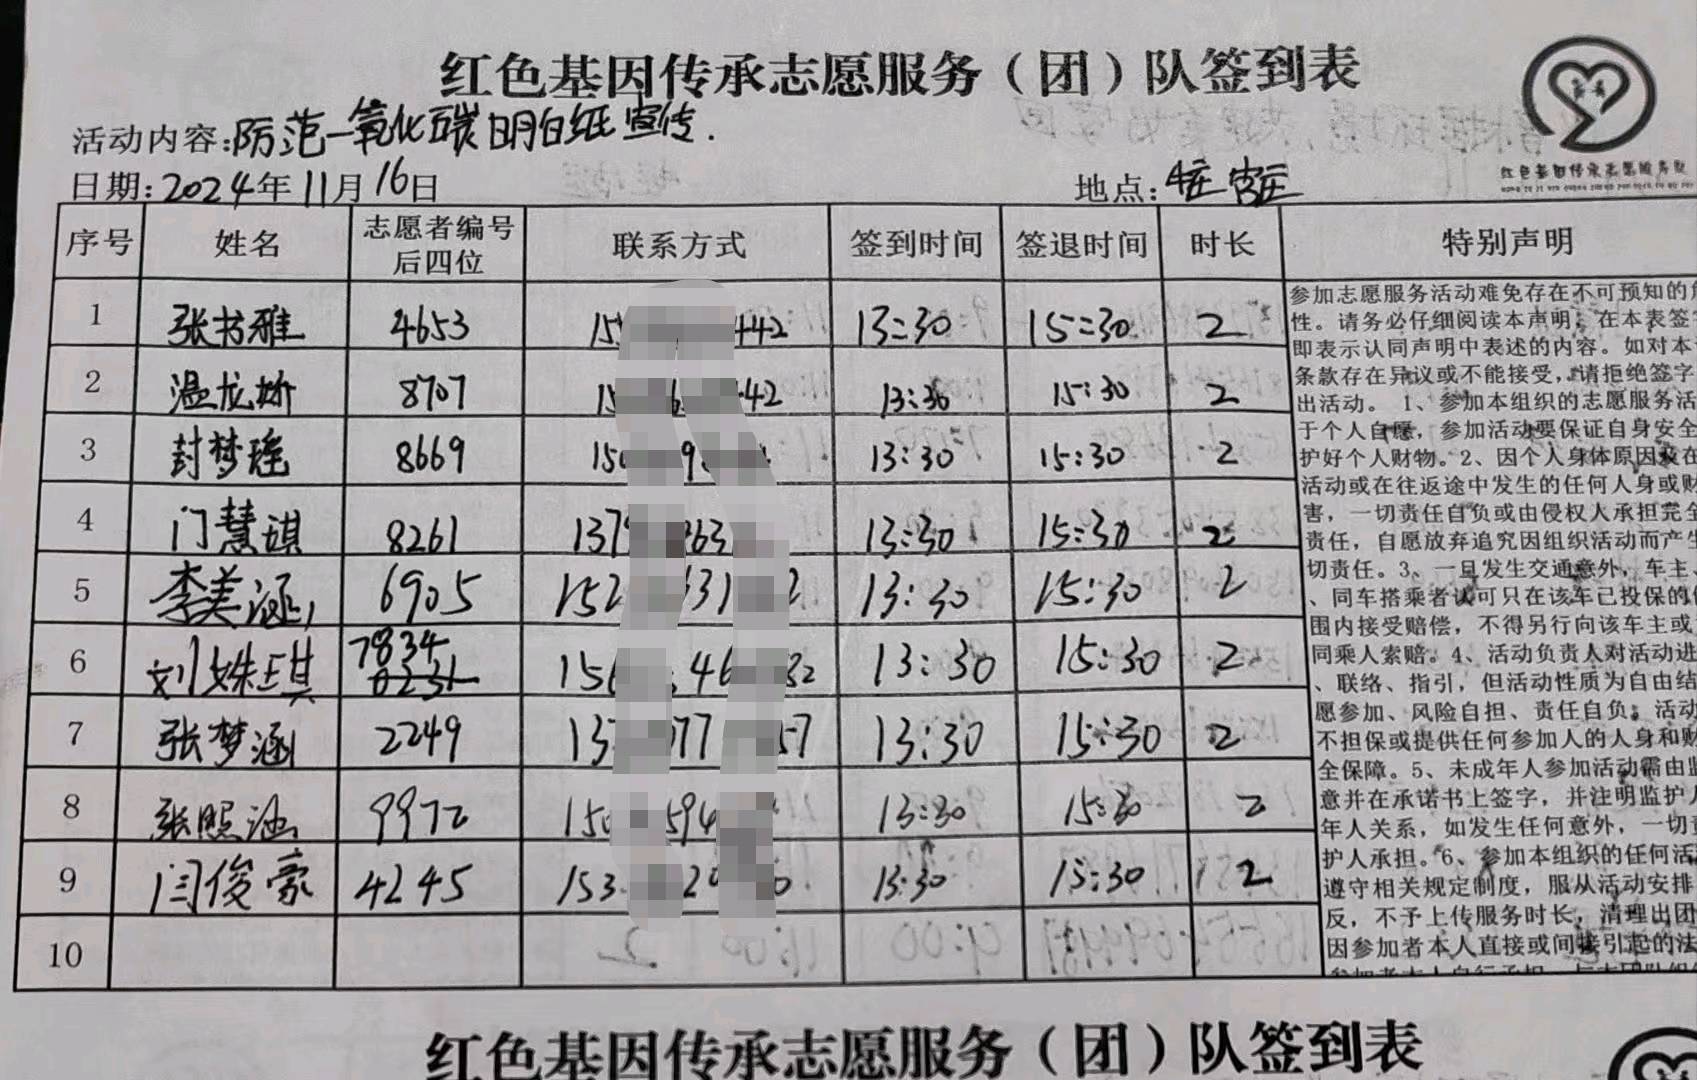 红色基因传承志愿服务（团）队签到表
活动内容:防范一氧化碳明白纸宣传.
日期:2024年11月16日
地点:
红色基因传承志愿服务队
序号 姓名 志愿者编号后四位 联系方式 签到时间 签退时间 时长 特别声明
1 张书雅 4653 15 442 13:30 15:30 2
2 温龙娇 8707 15 42 13:30 15:30 2
3 封梦瑶 8669 150 9 13:30 15:30 2
4 门慧琪 8261 137 363 13:30 15:30 2
5 李美涵 6905 152 31 2 13:30 15:30 2
6 刘姝琪 7834 156 46 82 13:30 15:30 2
7 张梦涵 2249 13 77 57 13:30 15:30 2
8 张照涵 9972 150 594 13:30 15:30 2
9 闫俊豪 4245 153 2 0 13:30 15:30 2
10
参加志愿服务活动难免存在不可预知的
性。请务必仔细阅读本声明，在本表签
即表示认同声明中表述的内容。如对本
条款存在异议或不能接受，请拒绝签字
出活动。 1、参加本组织的志愿服务活
于个人自愿，参加活动要保证自身安全
护好个人财物。2、因个人身体原因或在
活动或在往返途中发生的任何人身或财
害，一切责任自负或由侵权人承担完全
责任，自愿放弃追究因组织活动而产生
切责任。3、一旦发生交通意外，车主、
、同车搭乘者认可只在该车已投保的
围内接受赔偿，不得另行向该车主或
同乘人索赔。4、活动负责人对活动进
、联络、指引，但活动性质为自由结
愿参加、风险自担、责任自负；活动
不担保或提供任何参加人的人身和财
全保障。5、未成年人参加活动需由监
意并在承诺书上签字，并注明监护人
年人关系，如发生任何意外，一切责
护人承担。6、参加本组织的任何活
遵守相关规定制度，服从活动安排
反，不予上传服务时长，清理出团
因参加者本人直接或间接引起的法
红色基因传承志愿服务（团）队签到表